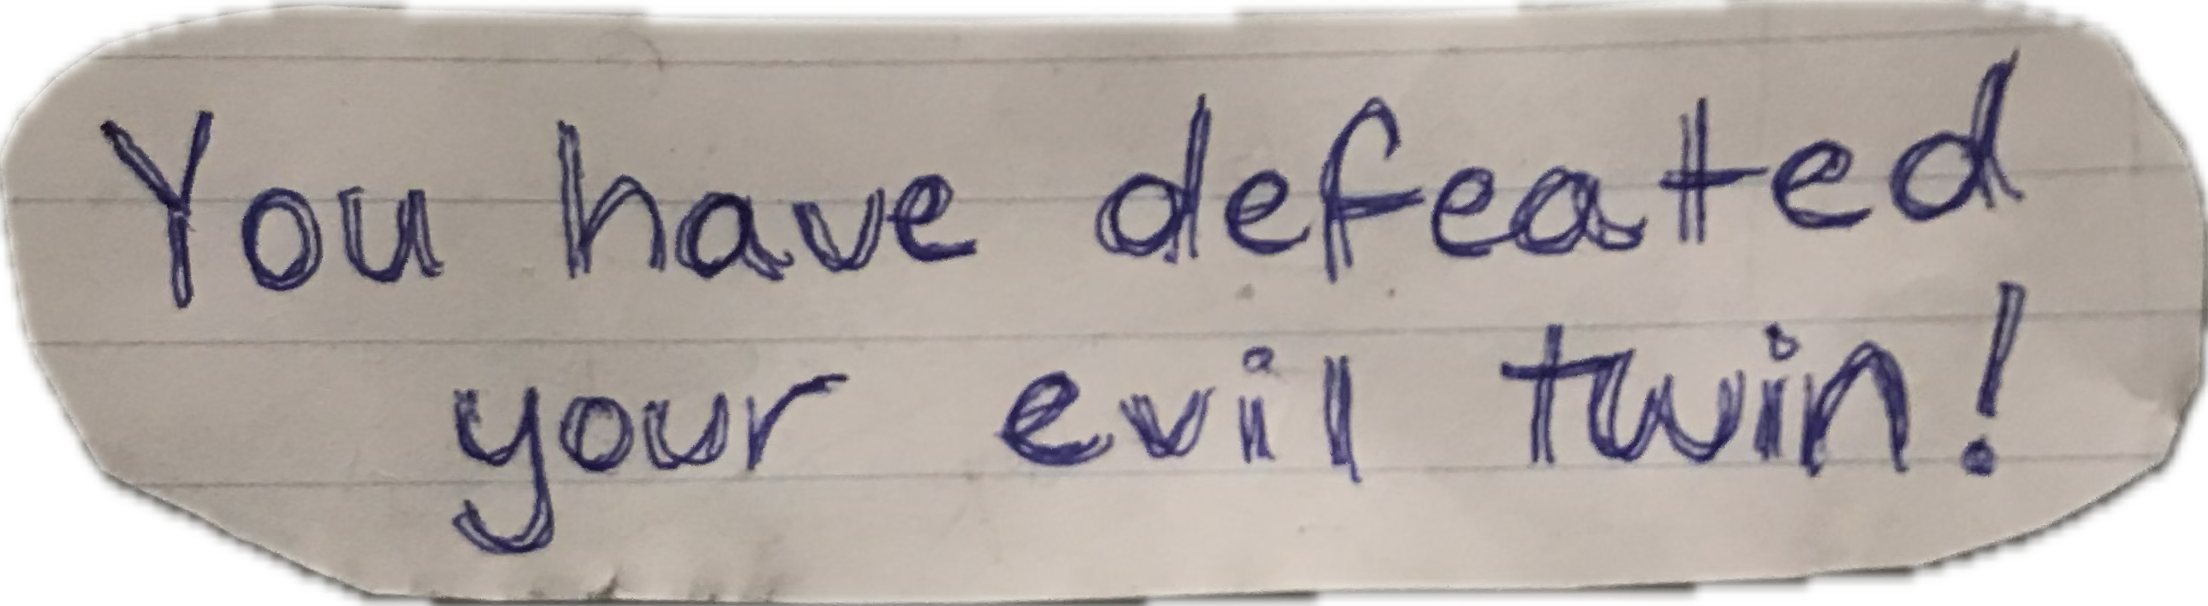 You have defeated
your evil twin!